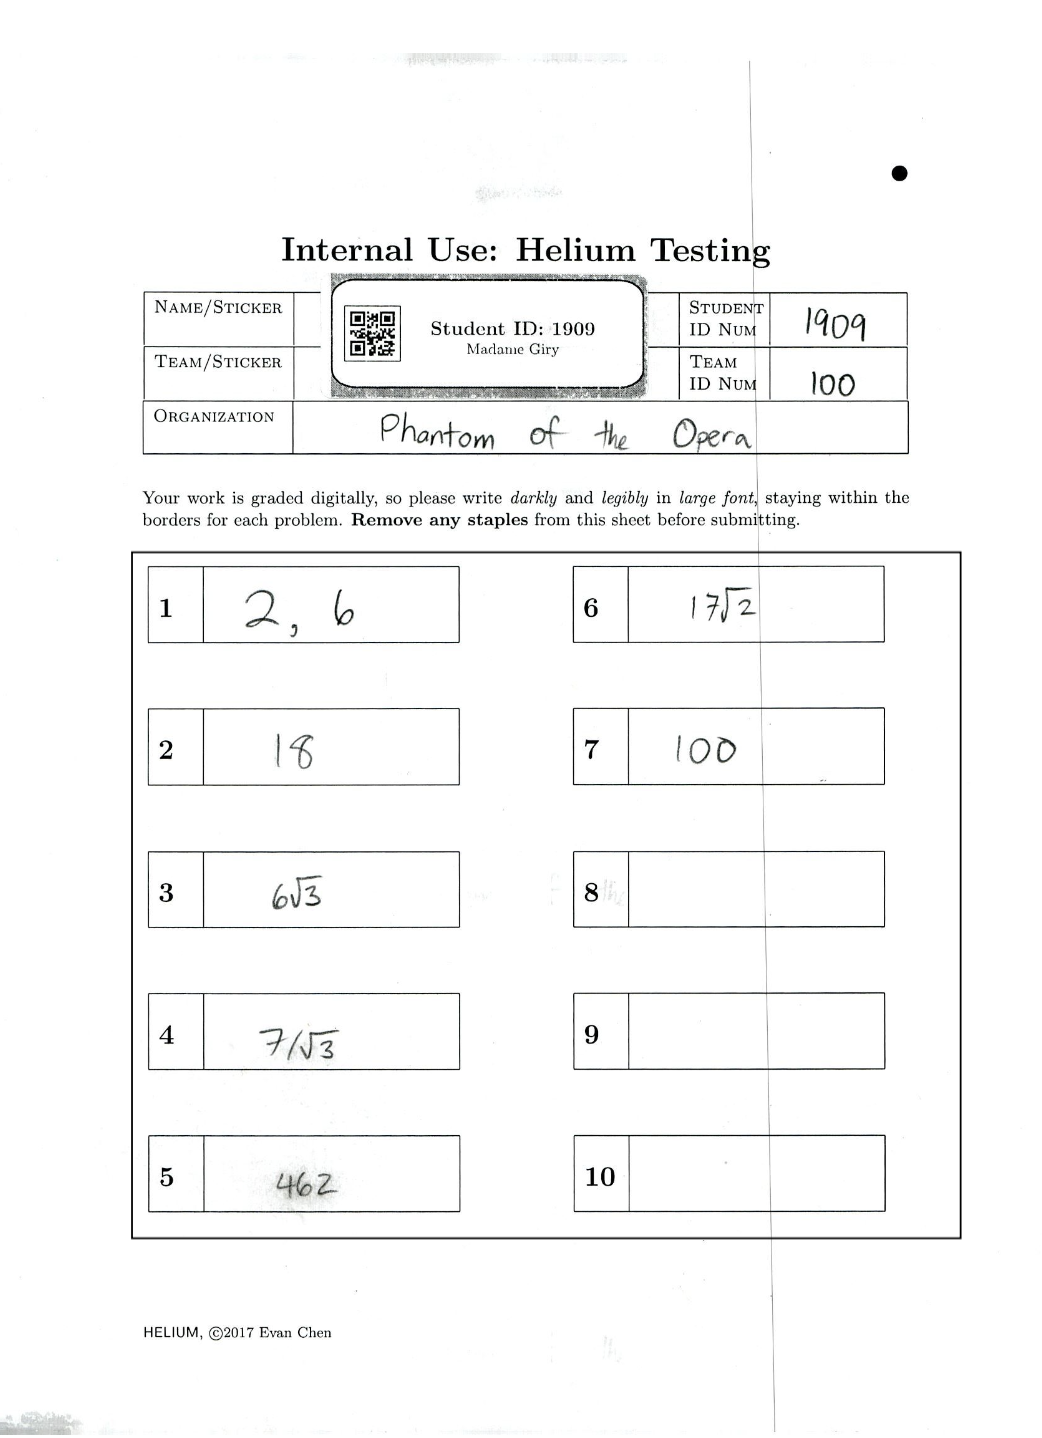 Internal Use: Helium Testing
NAME/STICKER
Student ID: 1909
Madame Giry
STUDENT ID NUM
1909
TEAM/STICKER
TEAM ID NUM
100
ORGANIZATION
Phantom of the Opera
Your work is graded digitally, so please write darkly and legibly in large font, staying within the
borders for each problem. Remove any staples from this sheet before submitting.
1 2, 6
6 17√2
2 18
7 100
3 6√3
8
4 7/√3
9
5 462
10
HELIUM, ©2017 Evan Chen